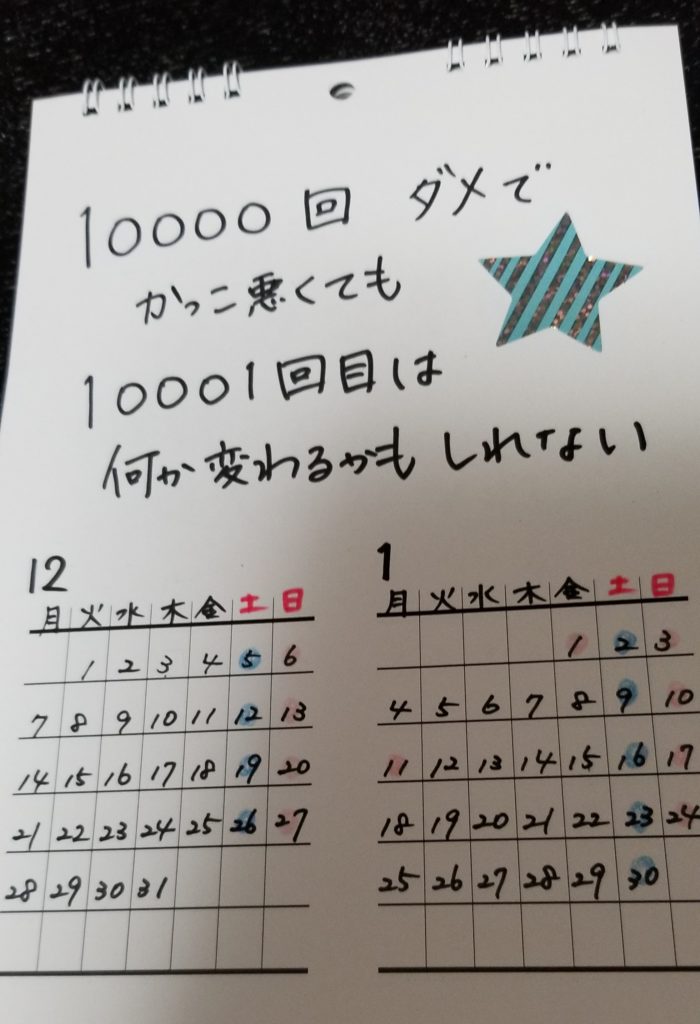 10000回 ダメで
かっこ悪くても
10001回目は
何か変わるかもしれない
12
月 火 水 木 金 土 日
1 2 3 4 5 6
7 8 9 10 11 12 13
14 15 16 17 18 19 20
21 22 23 24 25 26 27
28 29 30 31
1
月 火 水 木 金 土 日
1 2 3
4 5 6 7 8 9 10
11 12 13 14 15 16 17
18 19 20 21 22 23 24
25 26 27 28 29 30